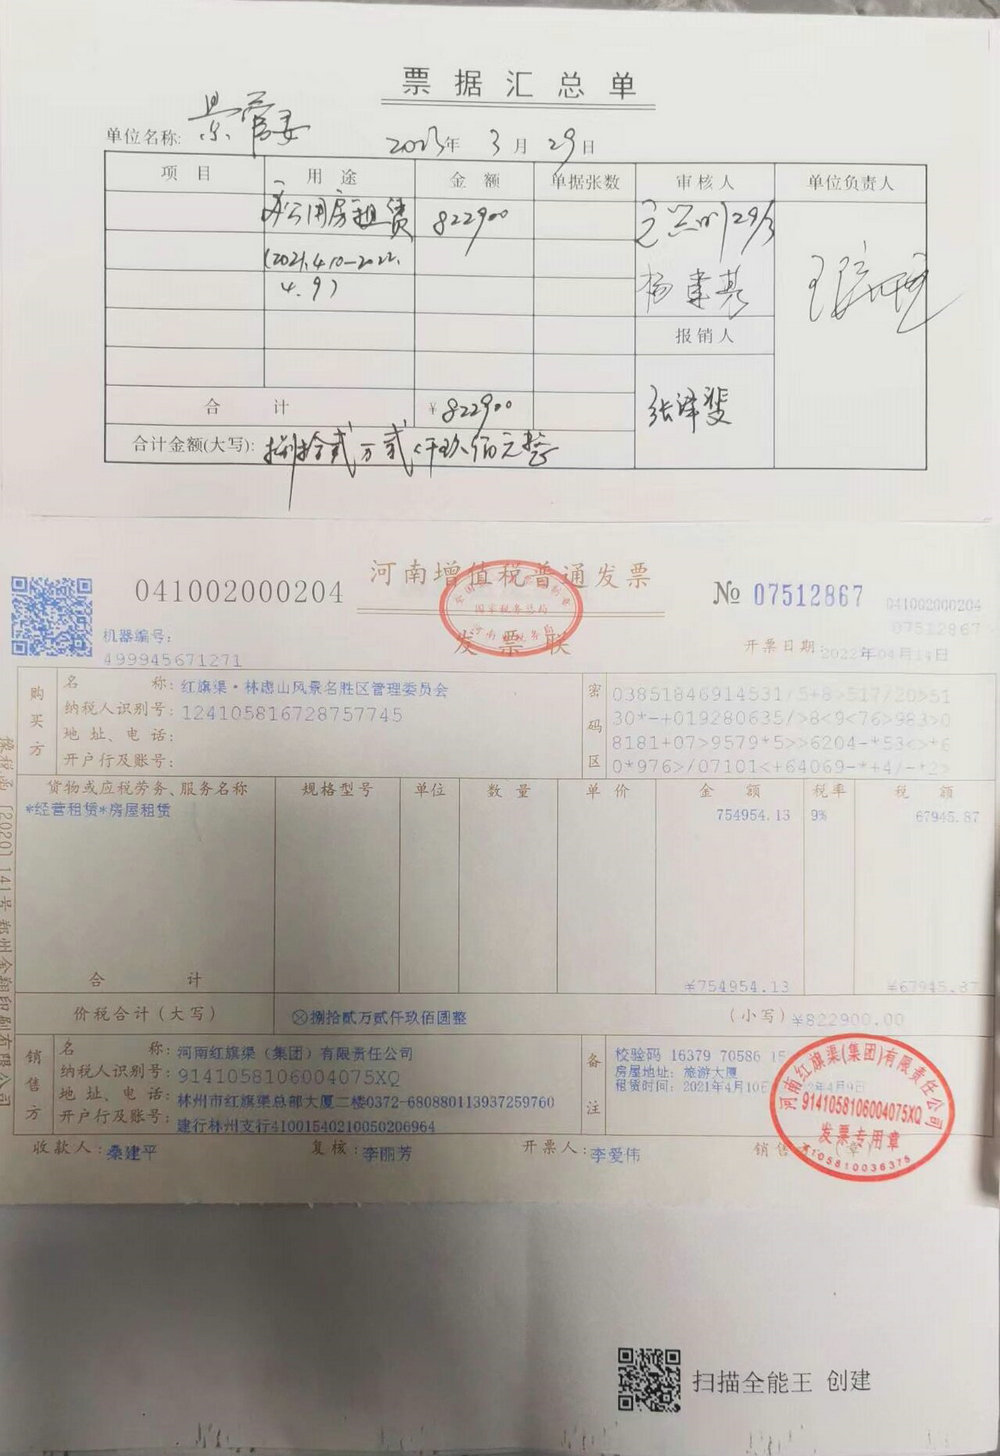 票据汇总单
单位名称: 景管委 2023年 3月 29日
项目 用途 金额 单据张数 审核人 单位负责人
办公用房租赁 822900
(2021.4.10-2022.
4.9)
报销人
合计 ¥822900
张泽斐
合计金额(大写): 捌拾贰万贰仟玖佰元整
河南增值税普通发票
041002000204
№ 07512867
041002000204
07512867
发票联
机器编号:
499945671271
开票日期: 2022年04月14日
购买方
名称: 红旗渠·林虑山风景名胜区管理委员会
纳税人识别号: 124105816728757745
地址、电话:
开户行及账号:
密码区
03851846914531/5+8>517/20>51
30*-+019280635/>8<9<76>983>0
8181+07>9579*5>>6204-*53<>*6
0*976>/07101<+64069-*+4/-*2>
货物或应税劳务、服务名称 规格型号 单位 数量 单价 金额 税率 税额
*经营租赁*房屋租赁 754954.13 9% 67945.87
合计 ¥754954.13 ¥67945.87
价税合计(大写) ⊗捌拾贰万贰仟玖佰圆整 (小写) ¥822900.00
销售方
名称: 河南红旗渠(集团)有限责任公司
纳税人识别号: 91410581060040​75XQ
地址、电话: 林州市红旗渠总部大厦二楼0372-680880113937259760
开户行及账号: 建行林州支行41001540210050206964
备注
校验码 16379 70586 15
房屋地址: 旅游大厦
租赁时间: 2021年4月10日 2年4月9日
河南红旗渠(集团)有限责任公司
9141058106004075XQ
发票专用章
4105810036375
收款人: 桑建平 复核: 李丽芳 开票人: 李爱伟 销售 (章)
扫描全能王 创建